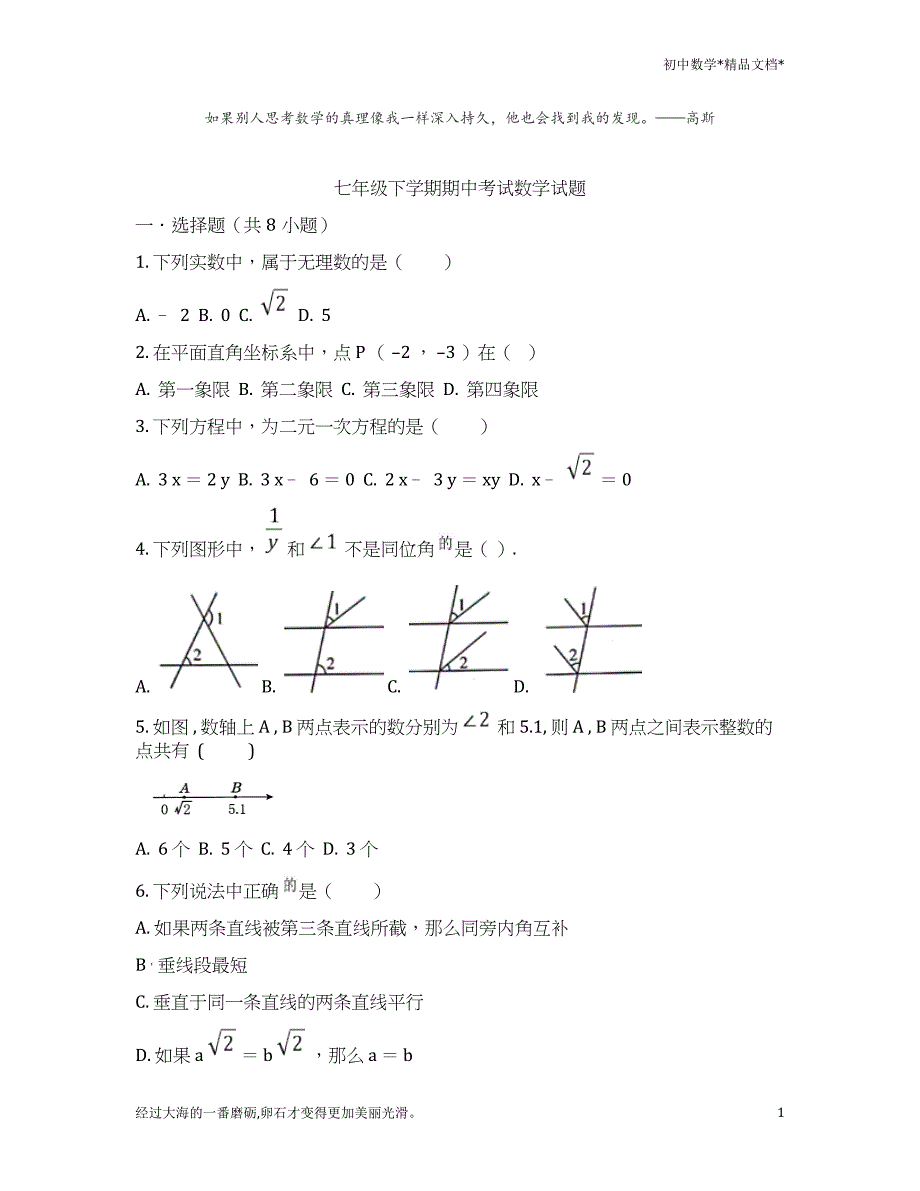 初中数学*精品文档*
如果别人思考数学的真理像我一样深入持久，他也会找到我的发现。——高斯
七年级下学期期中考试数学试题
一．选择题（共 8 小题）
1. 下列实数中，属于无理数的是（　　）
A. － 2 B. 0 C. √2 D. 5
2. 在平面直角坐标系中，点 P （ –2 ， –3 ）在（　）
A. 第一象限 B. 第二象限 C. 第三象限 D. 第四象限
3. 下列方程中，为二元一次方程的是（　　）
A. 3 x ＝ 2 y B. 3 x－ 6 ＝ 0 C. 2 x－ 3 y ＝ xy D. x－ √2 ＝ 0
4. 下列图形中， 1/y 和 ∠1 不是同位角 的 是（ ）.
1 2 1 2 1 2 1 2
A. B. C. D.
5. 如图 , 数轴上 A , B 两点表示的数分别为 ∠2 和 5.1, 则 A , B 两点之间表示整数的
点共有 (　　)
A B
0 √2 5.1
A. 6 个 B. 5 个 C. 4 个 D. 3 个
6. 下列说法中正确 的 是（　　）
A. 如果两条直线被第三条直线所截，那么同旁内角互补
B . 垂线段最短
C. 垂直于同一条直线的两条直线平行
D. 如果 a √2 ＝ b √2 ，那么 a ＝ b
经过大海的一番磨砺,卵石才变得更加美丽光滑。 1